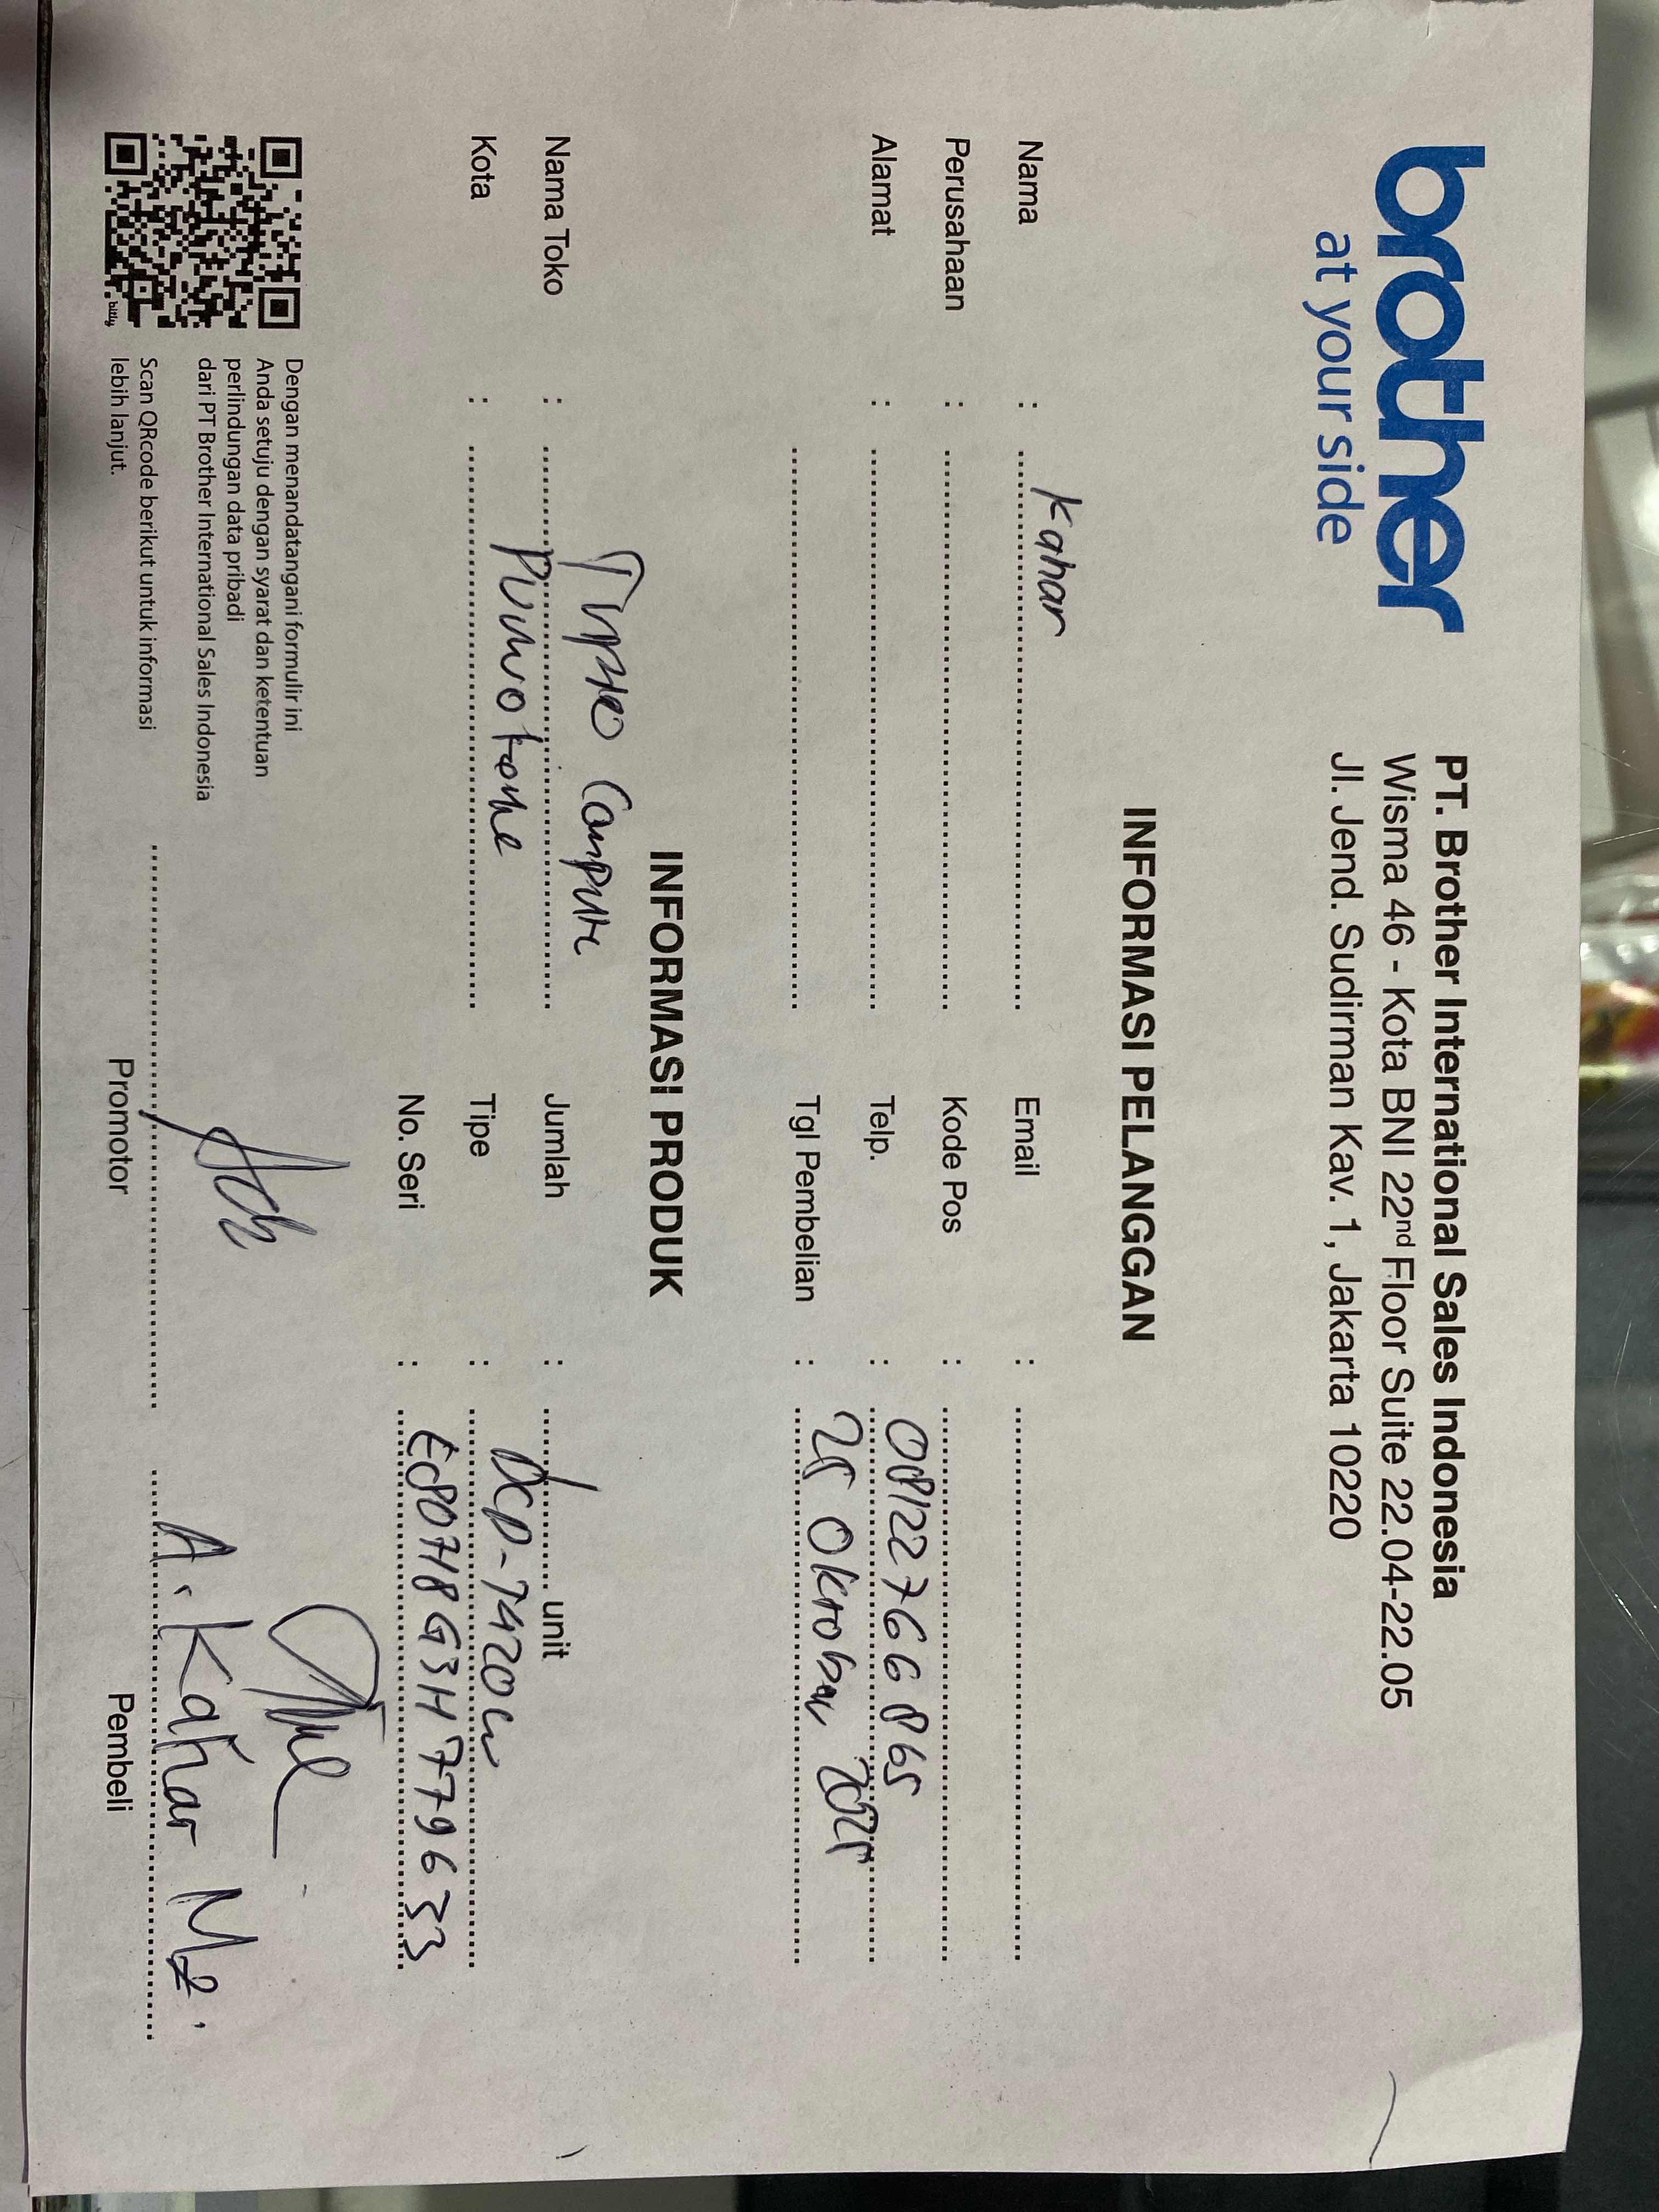 brother
at your side
PT. Brother International Sales Indonesia
Wisma 46 - Kota BNI 22nd Floor Suite 22.04-22.05
Jl. Jend. Sudirman Kav. 1, Jakarta 10220
INFORMASI PELANGGAN
Nama : Kahar Email :
Perusahaan : Kode Pos :
Alamat : Telp. : 081227666865
Tgl Pembelian : 25 Oktober 2025
INFORMASI PRODUK
Nama Toko : Jumlah : 1 unit
Kota : Tipe : DCP-T420W
No. Seri : E80718G3H779633
Dengan menandatangani formulir ini
Anda setuju dengan syarat dan ketentuan
perlindungan data pribadi
dari PT Brother International Sales Indonesia
Scan QRcode berikut untuk informasi
lebih lanjut.
bitly
A. Kahar Mz.
Promotor Pembeli